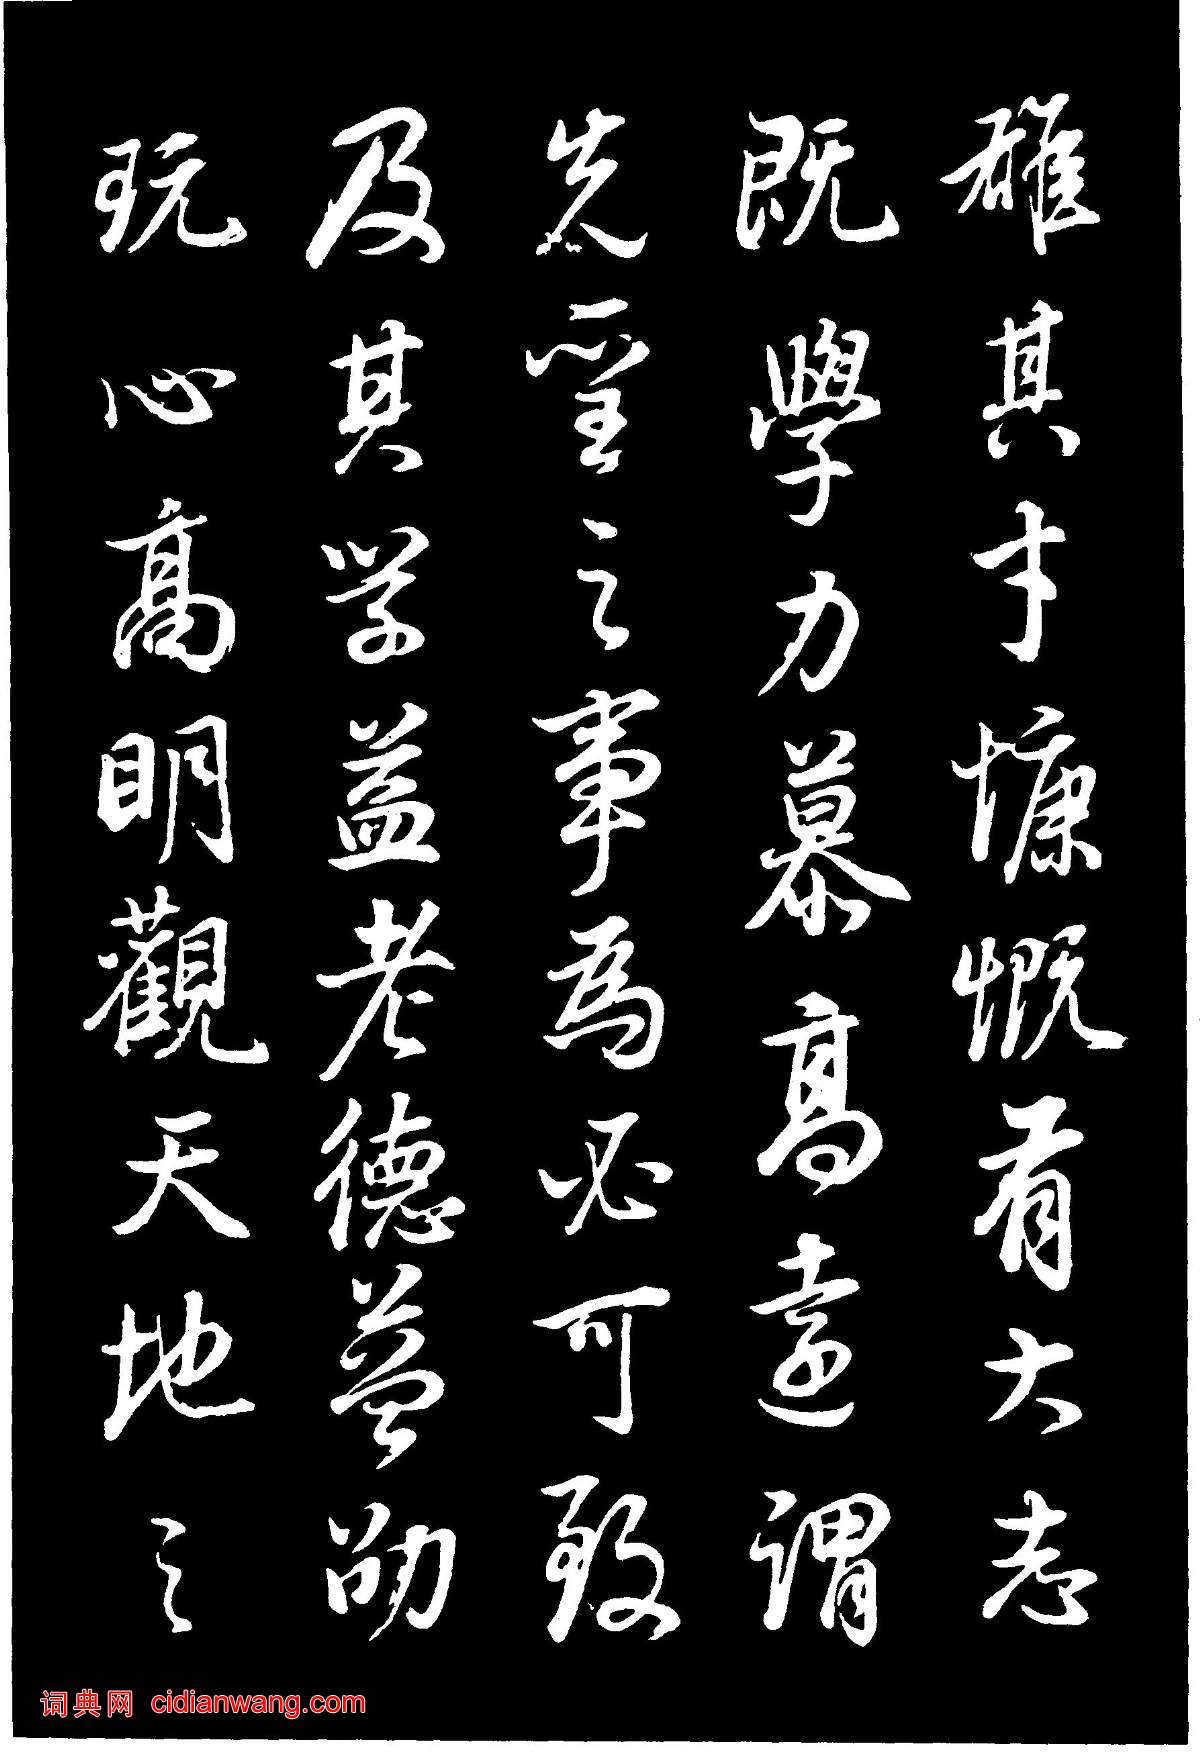 雄其才慷慨有大志
既學力慕高遠謂
先聖之事爲必可致
及其学益老德益劭
玩心高明觀天地之
词典网 cidianwang.com